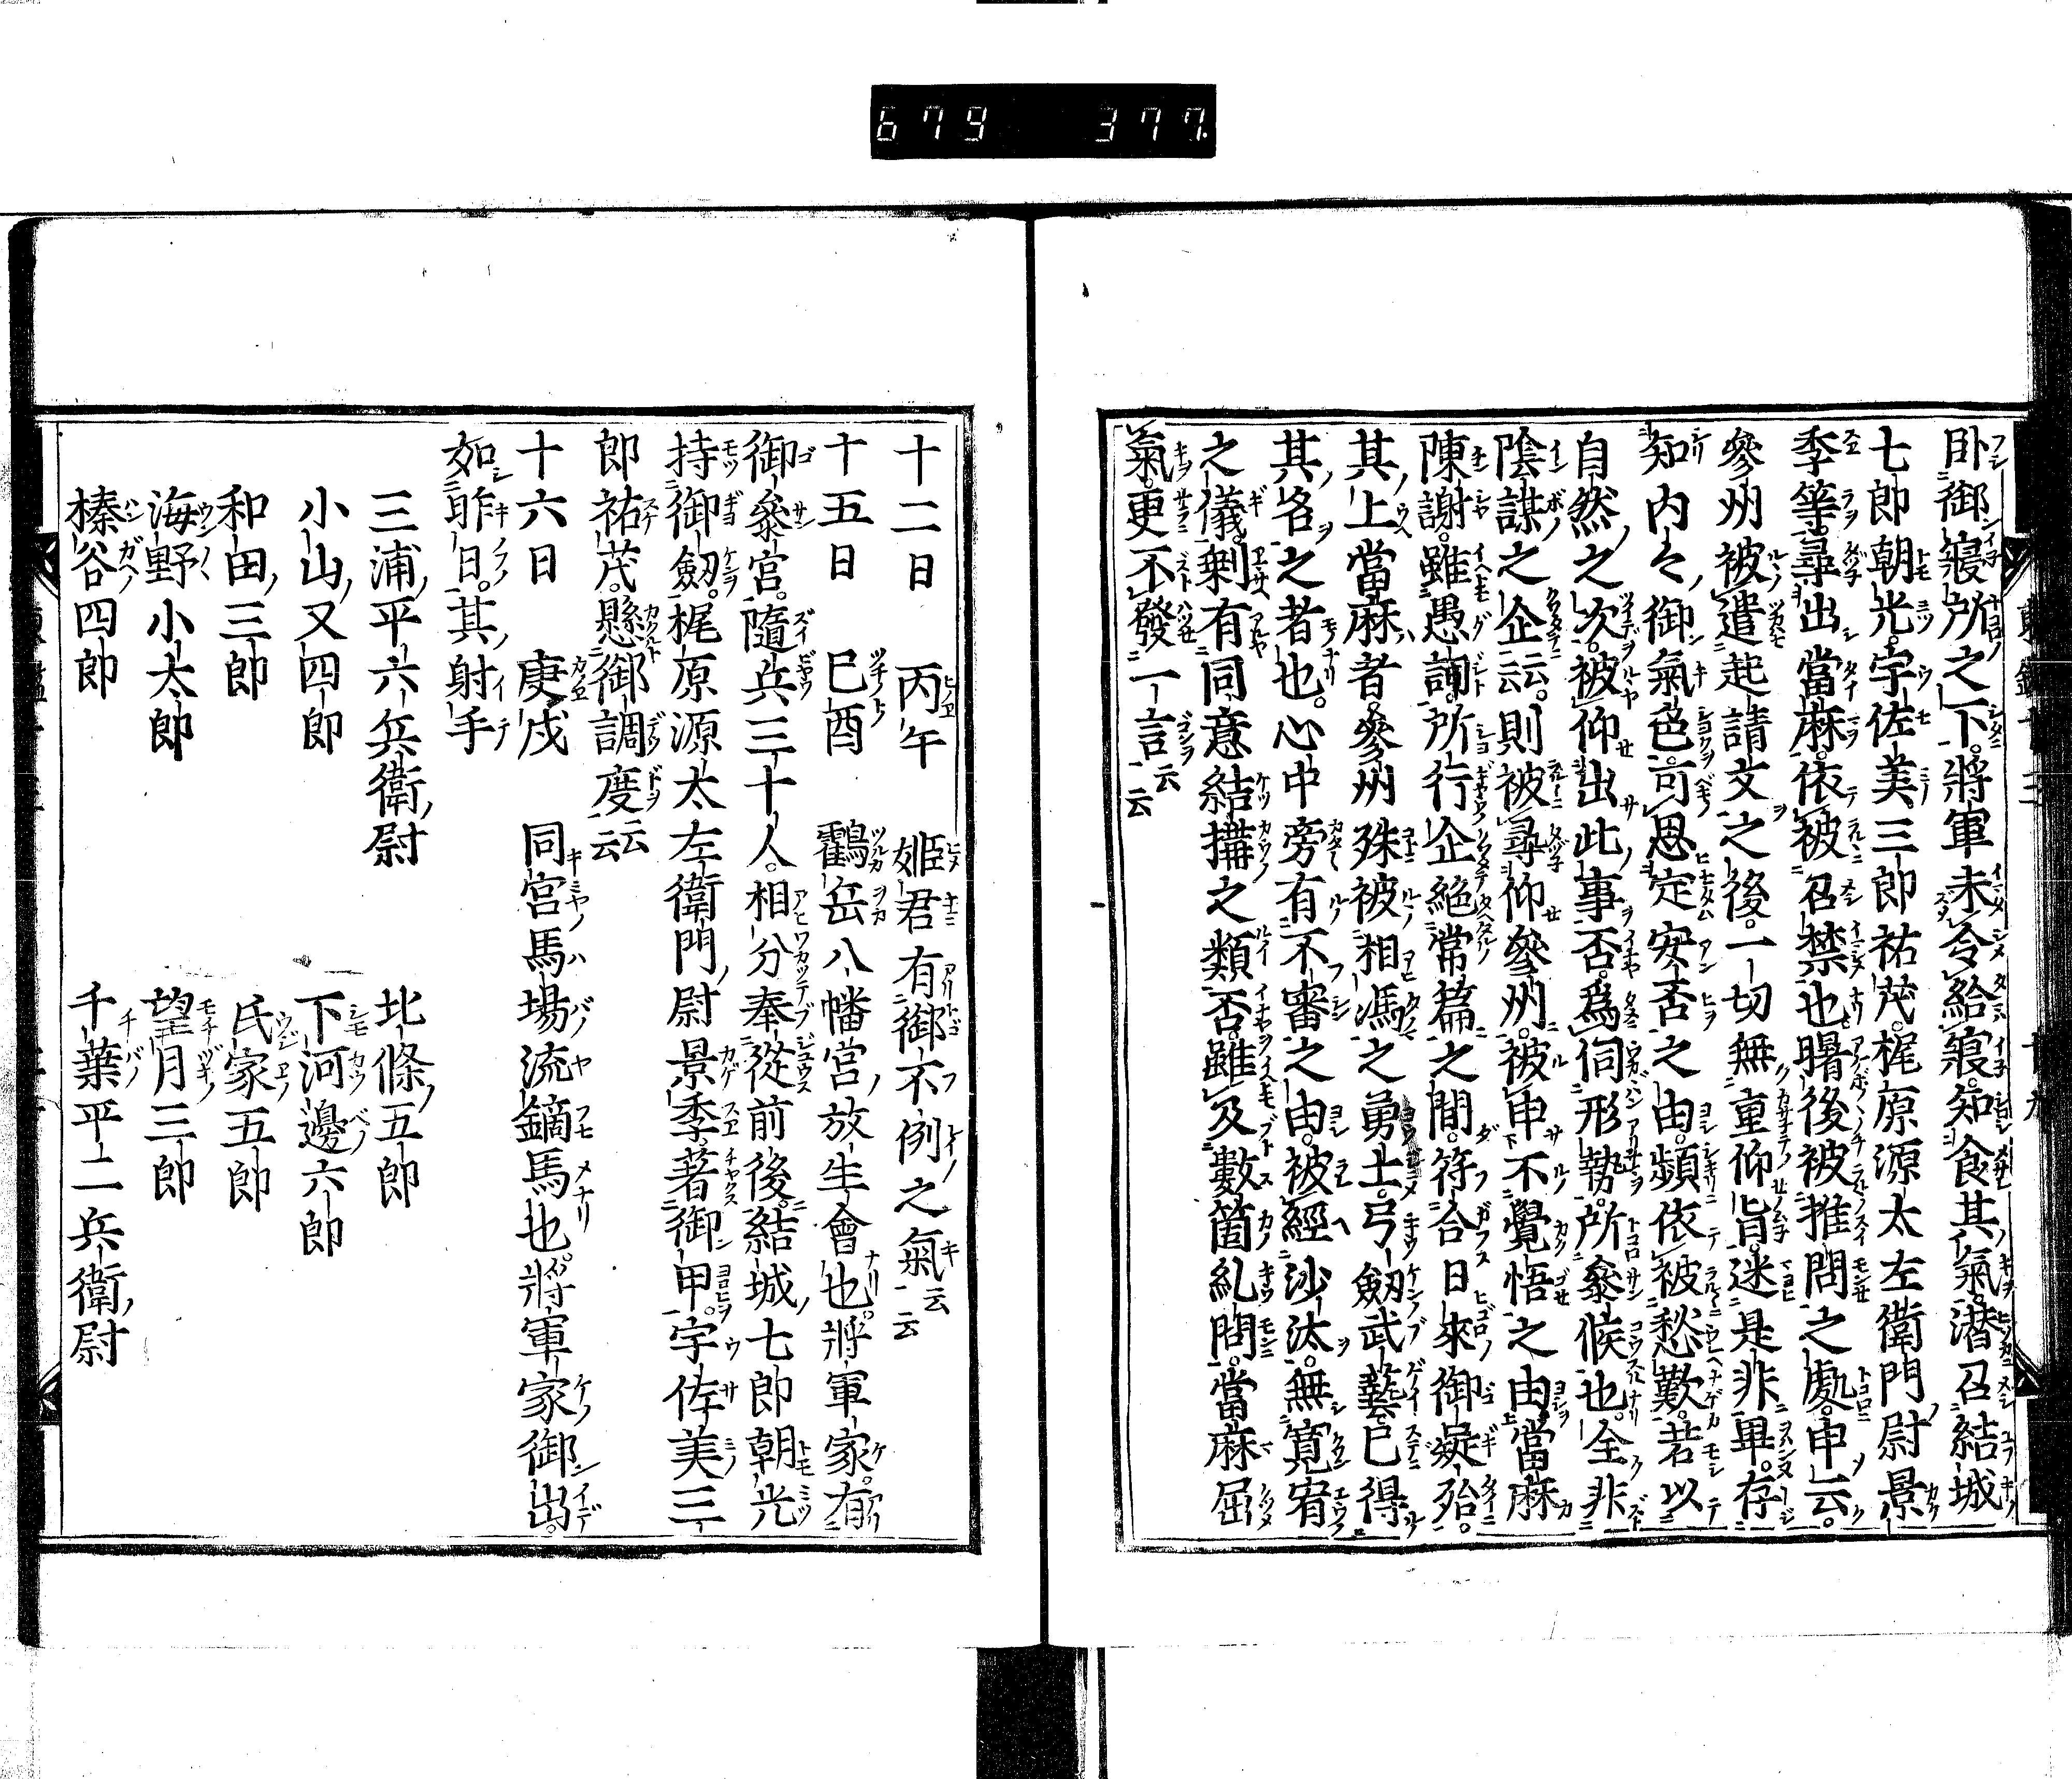 679 377
臥御寢所之下。將軍未令給寢。知食其氣。潜召結城
七郎朝光。宇佐美三郎祐茂。梶原源太左衛門尉景
季等。尋出當麻。依被召禁也。曙後被推問之處。申云。
參州被遣起請文之後。一切無重仰旨。迷是非畢。存
知内々御氣色。可思定安否之由。頻依被愁歎。若以
自然之次。被仰出此事否。爲伺形勢。所參候也。全非
陰謀之企云云。則被尋仰參州。被申不覺悟之由。當麻
陳謝。雖愚詞。所行企絶常篇之間。符合日來御疑殆。
其上當麻者。參州殊被相馮之勇士。弓劔武藝已得
其名之者也。心中旁有不審之由。被經沙汰。無寛宥
之儀。剰有同意結搆之類否。雖及數箇糺問。當麻屈
氣。更不發一言云云
十二日 丙午 姫君有御不例之氣云云
十五日 巳酉 鸖岳八幡宮放生會也。將軍家。有
御參宮。隨兵三十人。相分奉從前後。結城七郎朝光
持御劔。梶原源太左衛門尉景季。著御甲。宇佐美三
郎祐茂。懸御調度云云
十六日 庚戌 同宮馬塲流鏑馬也。將軍家御出。
如昨日。其射手
三浦平六兵衛尉 北條五郎
小山又四郎 下河邊六郎
和田三郎 氏家五郎
海野小太郎 望月三郎
榛谷四郎 千葉平二兵衛尉